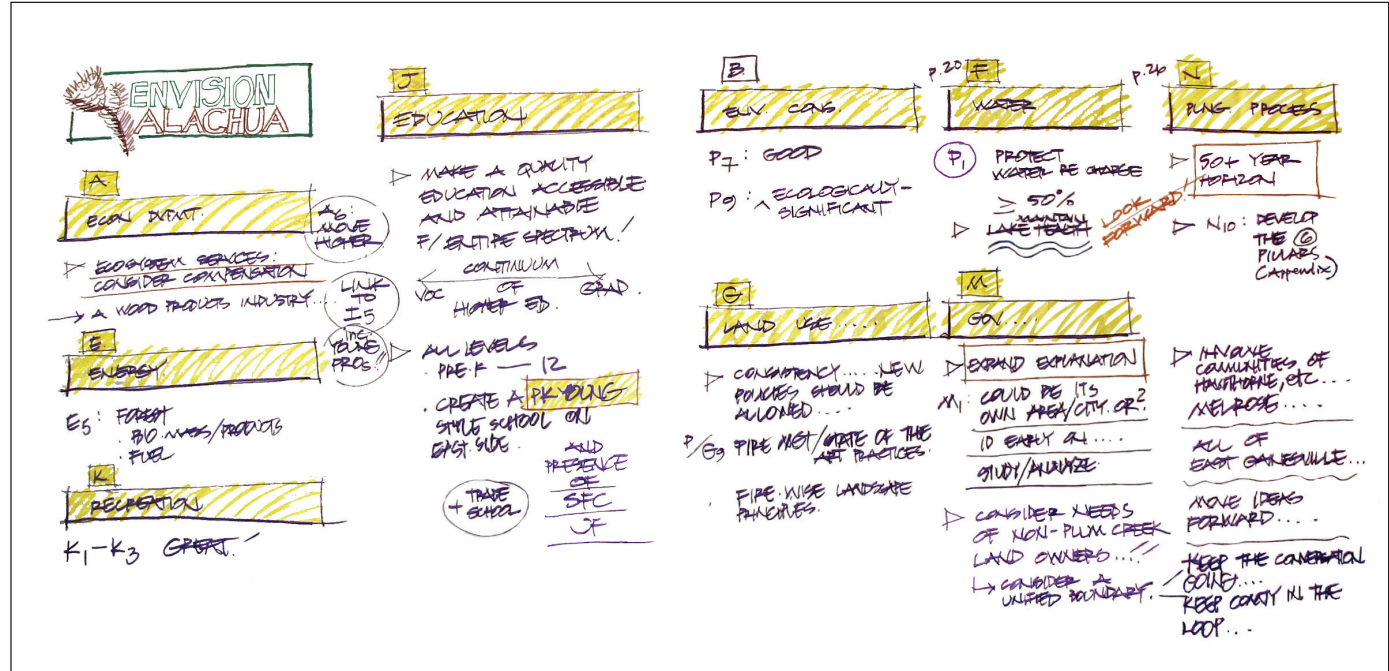 ENVISION
ALACHUA
A
ECON DVPMT.
A6:
MOVE
HIGHER
▷ ECOSYSTEM SERVICES:
CONSIDER COMPENSATION
→ A WOOD PRODUCTS INDUSTRY...
LINK
TO
I5
inc.
YOUNG
PROS.
E
ENERGY
E5: FOREST
. BIO-MASS/PRODUCTS
. FUEL
K
RECREATION
K1-K3 GREAT!
J
EDUCATION
▷ MAKE A QUALITY
EDUCATION ACCESSIBLE
AND ATTAINABLE
F/ ENTIRE SPECTRUM!
CONTINUUM
VOC OF GRAD.
HIGHER ED.
▷ ALL LEVELS
PRE-K — 12
. CREATE A PK YOUNG
STYLE SCHOOL ON
EAST SIDE.
AND
PRESENCE
OF
SFC
UF
+ TRADE
SCHOOL
B
ENV. CONS.
P7: GOOD
P9: ^ ECOLOGICALLY-
SIGNIFICANT
G
LAND USE.....
▷ CONSISTENCY.....NEW
POLICIES SHOULD BE
ALLOWED....
P/G9 FIRE MGT/STATE OF THE
ART PRACTICES.
. FIRE-WISE LANDSCAPE
PRINCIPLES.
p.20
F
WATER
P1
PROTECT
WATER RE CHARGE
≥ 50%
▷ MAINTAIN
LAKE HEALTH
LOOK
FORWARD!
M
GOV....
▷ EXPAND EXPLANATION
M1: COULD BE ITS
OWN AREA/CITY OR?
ID EARLY ON....
STUDY/ANALYZE
▷ CONSIDER NEEDS
OF NON-PLUM CREEK
LAND OWNERS...!!
↳ CONSIDER A
UNIFIED BOUNDARY.
p.26
N
PLNG PROCESS
▷ 50+ YEAR
HORIZON
▷ N10: DEVELOP
THE 6
PILLARS
(Appendix)
▷ INVOLVE
COMMUNITIES OF
HAWTHORNE, ETC...
MELROSE....
ALL OF
EAST GAINESVILLE...
MOVE IDEAS
FORWARD....
KEEP THE CONVERSATION
GOING....
KEEP COUNTY IN THE
LOOP...